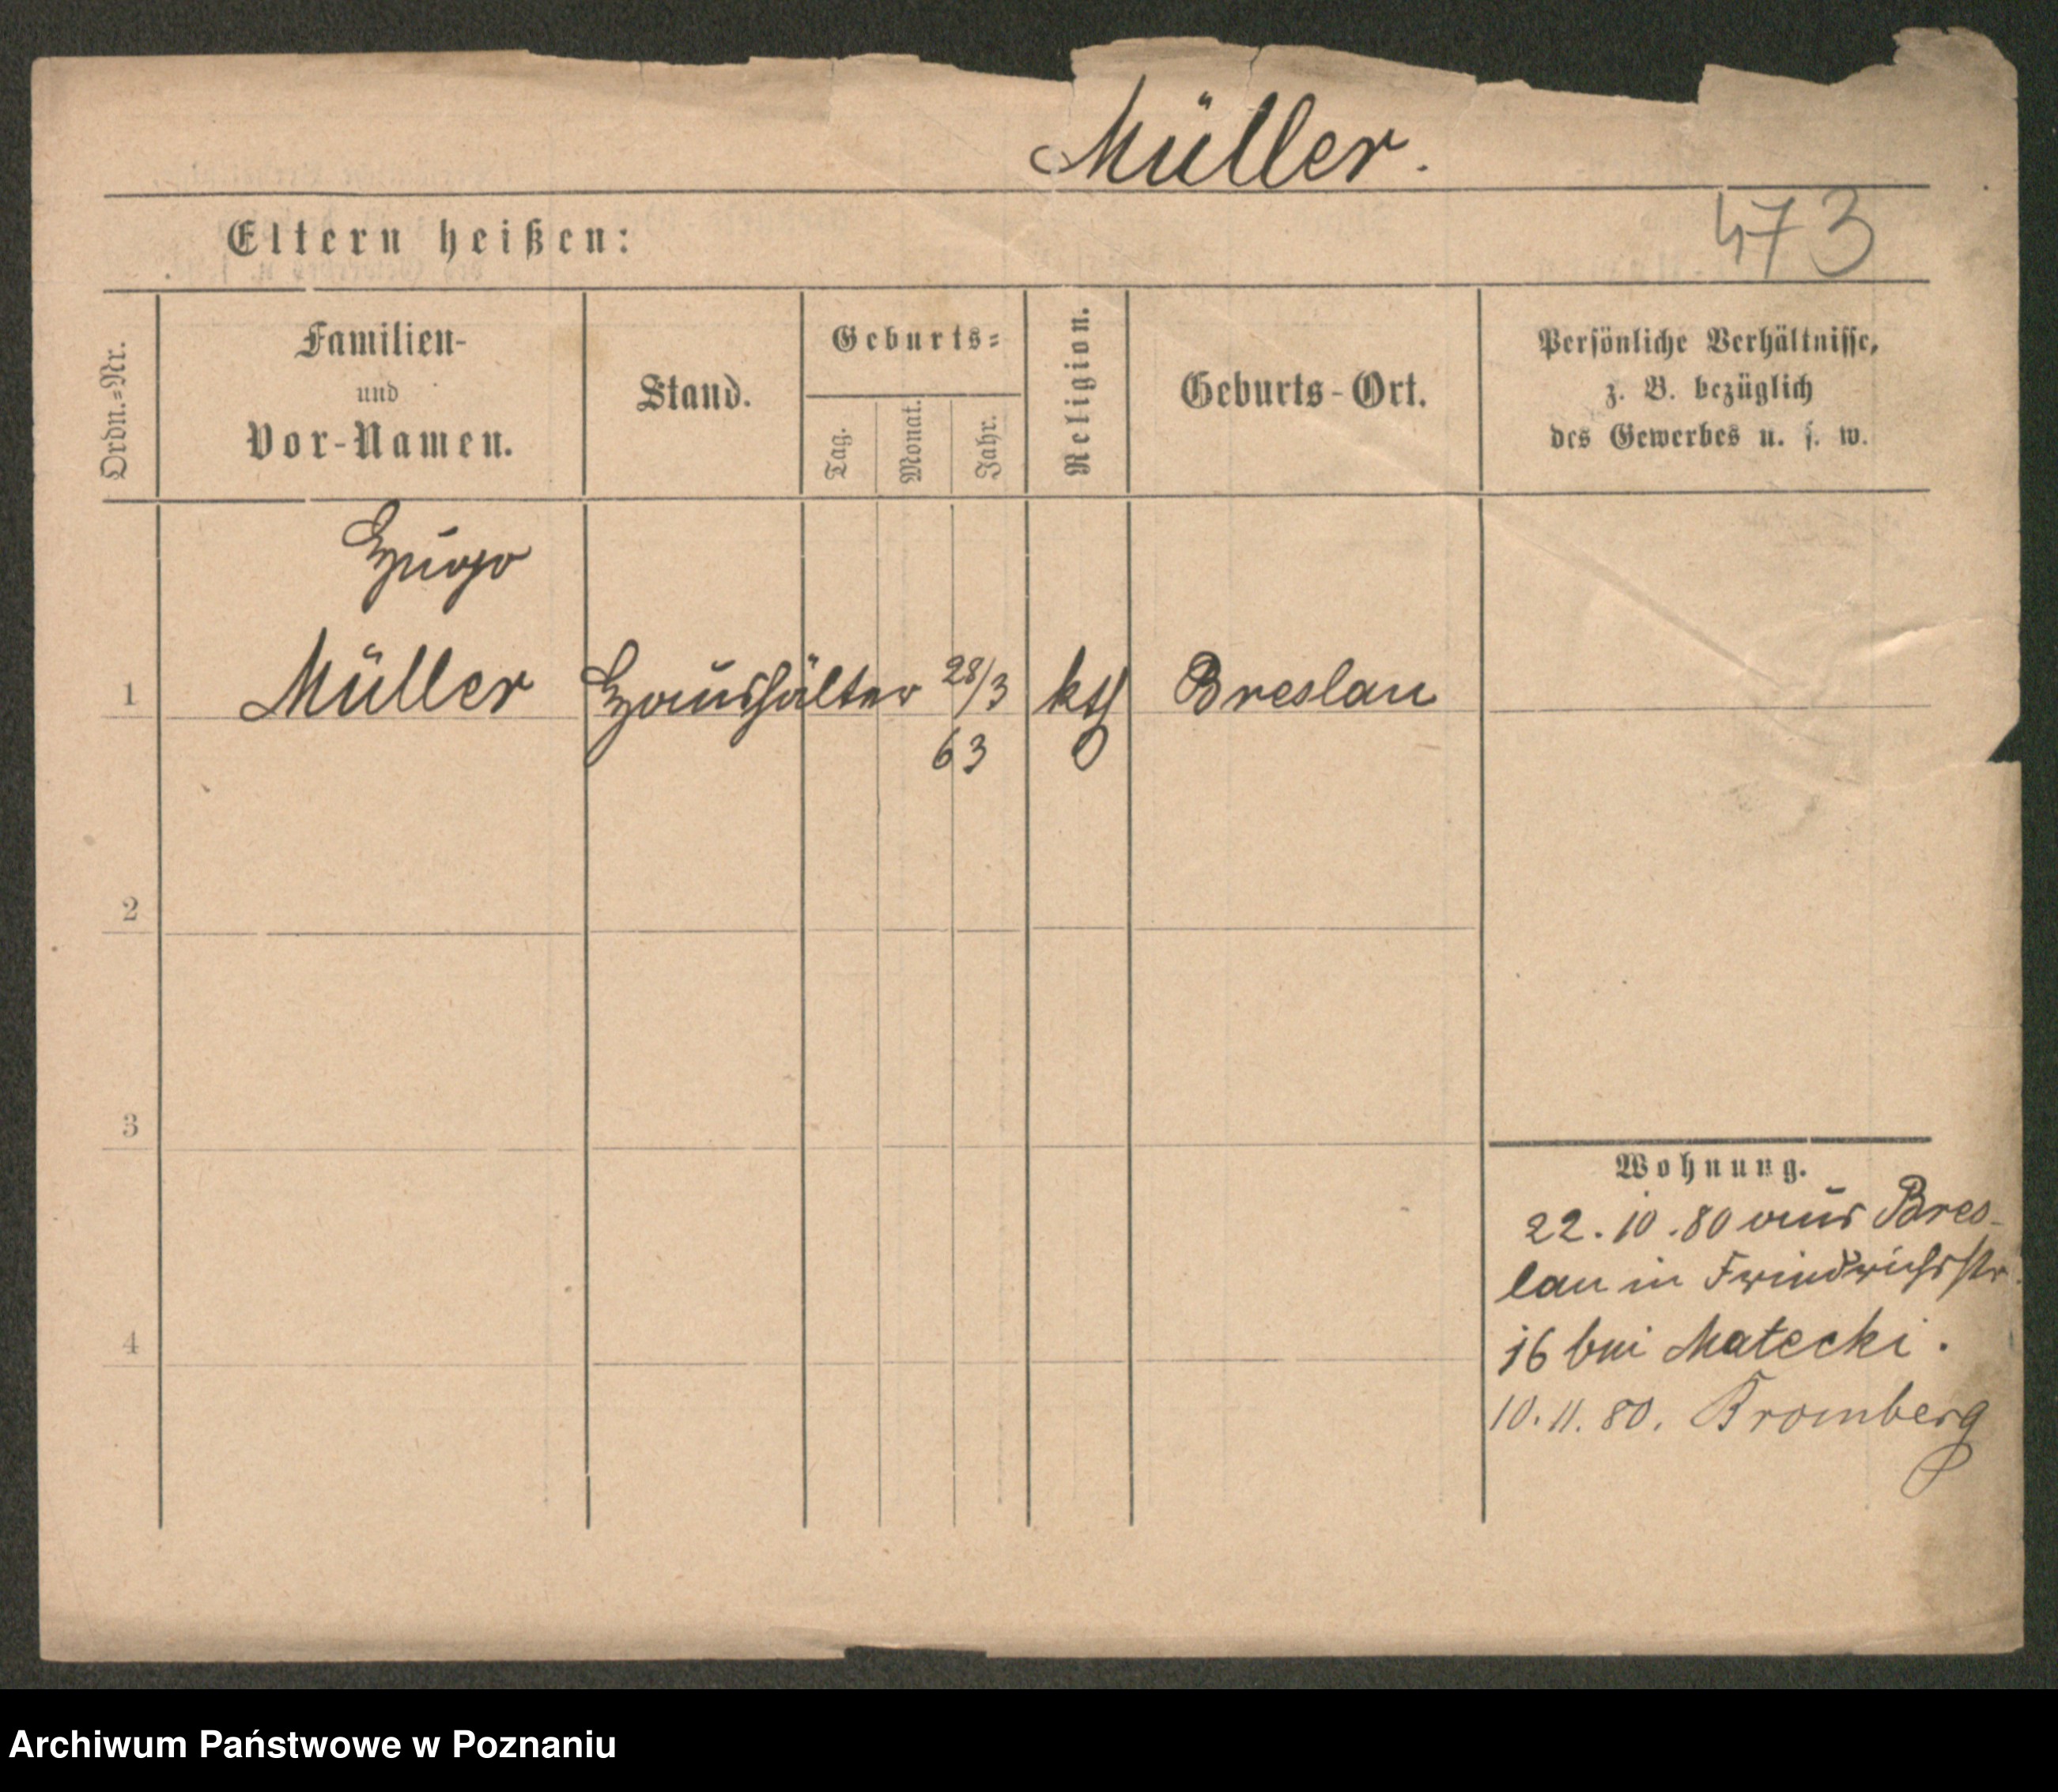 Müller.
Eltern heißen:
473
Ordn.-Nr.
Familien-
und
Vor-Namen.
Stand.
Geburts-
Tag.
Monat.
Jahr.
Religion.
Geburts-Ort.
Persönliche Verhältnisse,
z. B. bezüglich
des Gewerbes u. s. w.
Hugo
1 Müller Haushälter 28/3 kth Breslau
63
2
3
4
Wohnung.
22.10.80 aus Bres-
lau in Friedrichsstr.
16 bei Matecki.
10.11.80. Bromberg
Archiwum Państwowe w Poznaniu